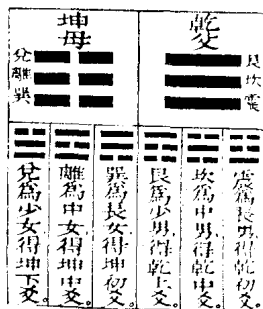 乾父
艮
坎
震
坤母
兌
離
巽
震爲長男得乾初爻。
坎爲中男得乾中爻。
艮爲少男得乾上爻。
巽爲長女得坤初爻。
離爲中女得坤中爻。
兌爲少女得坤下爻。